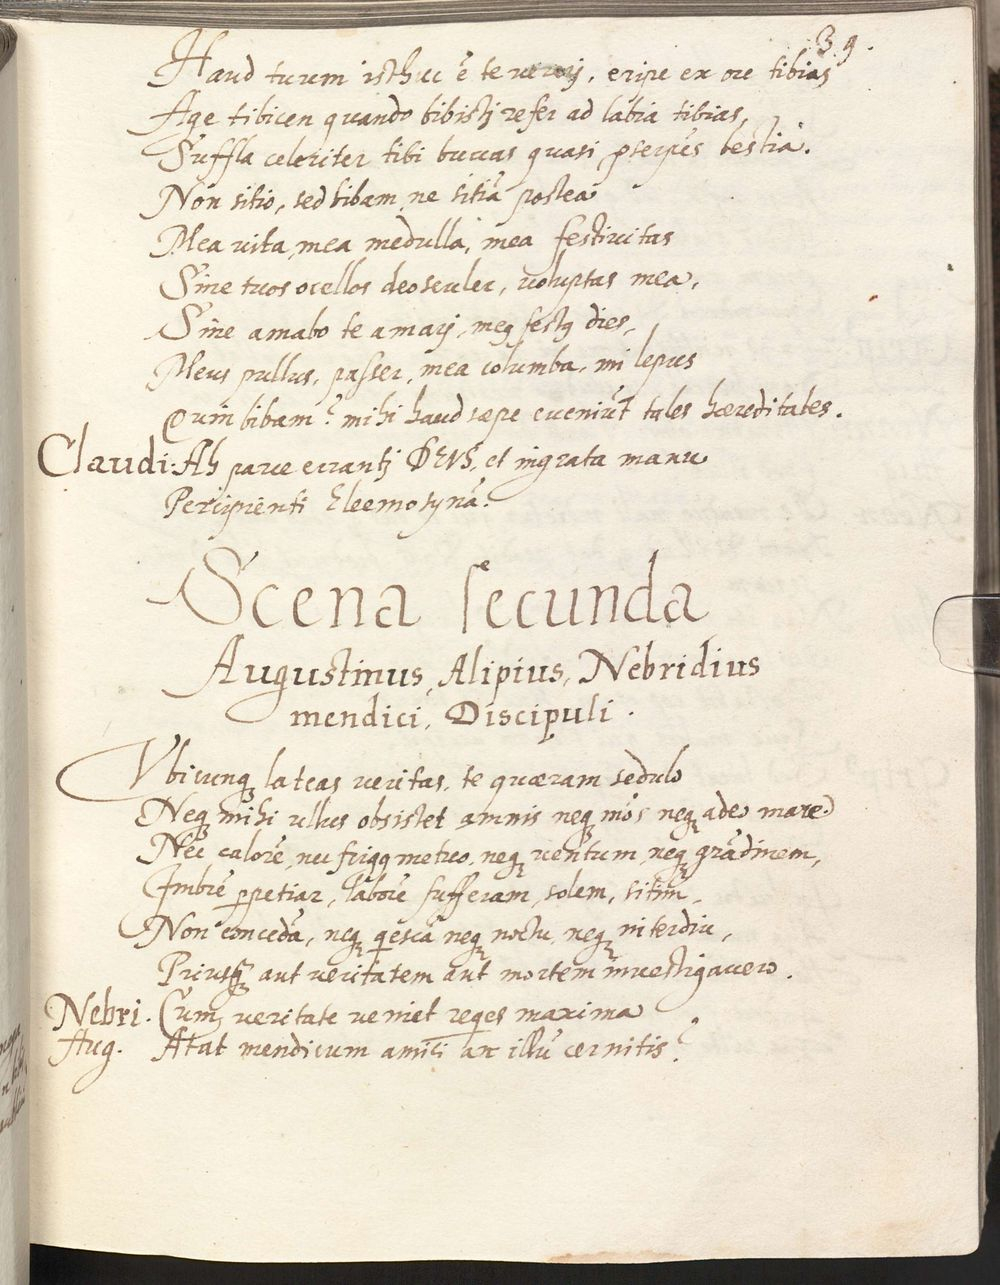 39.
Haud tuum isthuc ē te vererj, eripe ex ore tibias
Age tibicen quando bibistj refer ad labia tibias,
Suffla celeriter tibi buccas quasi ꝓserpēs bestia.
Non sitio, sed bibam, ne sitiā postea
Mea vita, mea medulla, mea festivitas
Sine tuos ocellos deosculer, voluptas mea,
Sine amabo te amarj, meꝰ festꝰ dies,
Meus pullus, passer, mea columba, mi lepus
Quin bibam? mihi haud sæpe eveniūt tales hæreditates.
Claudi: Ah parce errantj DEUS, et ingrata manu
Percipienti Eleemosynā.
Scena secunda
Augustinus, Alipius, Nebridius
mendici, Discipuli.
Vbicunqꝫ lateas veritas, te quæram sedulo
Neqꝫ mihi ullus obsistet amnis neqꝫ mōs neqꝫ adeo mare
Nec calorē, nec frigꝰ metuo, neqꝫ ventum, neqꝫ grādinem,
Imbrē ꝑpetiar, laborē sufferam, solem, sitim,
Non concedā, neqꝫ qiescā neqꝫ noctu, neqꝫ interdiu,
Priusqꝫ aut veritatem aut mortem investigavero.
Nebri. Cum veritate veniet reqies maxima
Aug. Atat mendicum amici an illū cernitis?